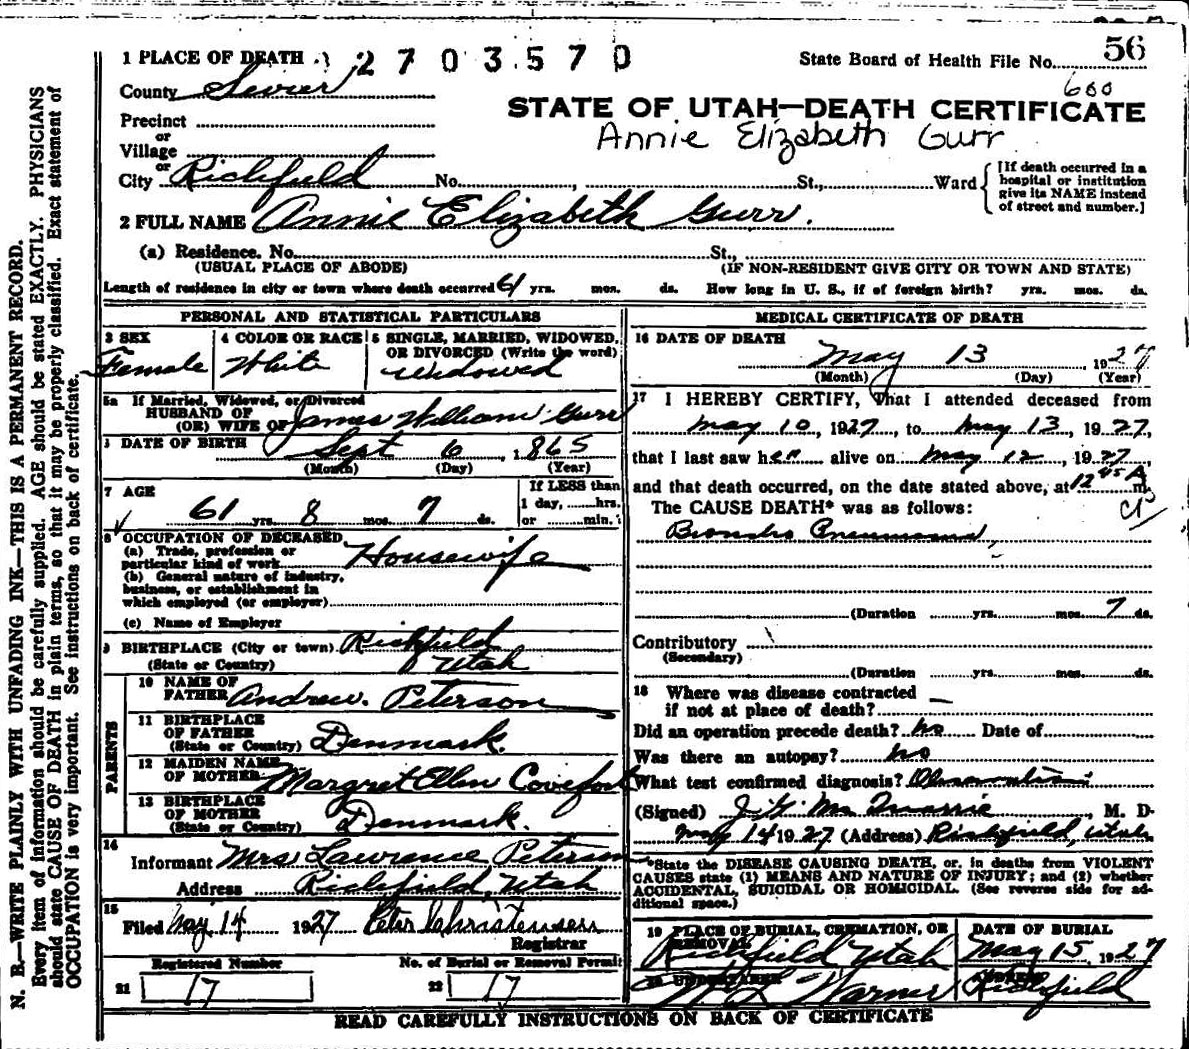 56
1 PLACE OF DEATH 2 7 0 3 5 7 0
State Board of Health File No. 56
600
County Sevier
STATE OF UTAH—DEATH CERTIFICATE
Annie Elizabeth Gurr
Precinct
or
Village
or
City Richfield No. , St., Ward
[If death occurred in a
hospital or institution
give its NAME instead
of street and number.]
2 FULL NAME Annie Elizabeth Gurr.
(a) Residence. No. St.,
(USUAL PLACE OF ABODE) (IF NON-RESIDENT GIVE CITY OR TOWN AND STATE)
Length of residence in city or town where death occurred 61 yrs. mos. ds. How long in U. S., if of foreign birth? yrs. mos. ds.
PERSONAL AND STATISTICAL PARTICULARS
3 SEX
Female
4 COLOR OR RACE
White
5 SINGLE, MARRIED, WIDOWED,
OR DIVORCED (Write the word)
Widowed
5a If Married, Widowed, or Divorced
HUSBAND OF
(OR) WIFE OF James William Gurr
6 DATE OF BIRTH Sept 6, 1865
(Month) (Day) (Year)
7 AGE
61 yrs. 8 mos. 7 ds.
If LESS than
1 day, hrs.
or min.
8 OCCUPATION OF DECEASED
(a) Trade, profession or
particular kind of work Housewife
(b) General nature of industry,
business, or establishment in
which employed (or employer)
(c) Name of Employer
9 BIRTHPLACE (City or town) Richfield
(State or Country) Utah
PARENTS
10 NAME OF
FATHER Andrew. Peterson
11 BIRTHPLACE
OF FATHER
(State or Country) Denmark.
12 MAIDEN NAME
OF MOTHER Margret Ellen
13 BIRTHPLACE
OF MOTHER
(State or Country) Denmark.
14
Informant Mrs Lawrence Peterson
Address Richfield, Utah
15
Filed May 14 1927 Peter Christensen
Registrar
Registered Number
21 17
No. of Burial or Removal Permit
22 17
MEDICAL CERTIFICATE OF DEATH
16 DATE OF DEATH
May 13 1927
(Month) (Day) (Year)
17 I HEREBY CERTIFY, that I attended deceased from
May 10, 1927, to May 13, 1927,
that I last saw her alive on May 12, 1927,
and that death occurred, on the date stated above, at 12 45 A m.
The CAUSE DEATH* was as follows:
Broncho Pneumonia,
(Duration yrs. mos. 7 ds.
Contributory
(Secondary)
(Duration yrs. mos. ds.
18 Where was disease contracted
if not at place of death? —
Did an operation precede death? No Date of
Was there an autopsy? No
What test confirmed diagnosis? Observation
(Signed) J. G. McQuarrie, M. D.
May 14 1927 (Address) Richfield, Utah
*State the DISEASE CAUSING DEATH, or, in deaths from VIOLENT
CAUSES state (1) MEANS AND NATURE OF INJURY; and (2) whether
ACCIDENTAL, SUICIDAL OR HOMICIDAL. (See reverse side for ad-
ditional space.)
19 PLACE OF BURIAL, CREMATION, OR
REMOVAL
Richfield Utah
DATE OF BURIAL
May 15, 1927
20 UNDERTAKER
Warner
ADDRESS
Richfield
READ CAREFULLY INSTRUCTIONS ON BACK OF CERTIFICATE
N. B.—WRITE PLAINLY WITH UNFADING INK—THIS IS A PERMANENT RECORD.
Every item of information should be carefully supplied. AGE should be stated EXACTLY. PHYSICIANS
should state CAUSE OF DEATH in plain terms, so that it may be properly classified. Exact statement of
OCCUPATION is very important. See instructions on back of certificate.